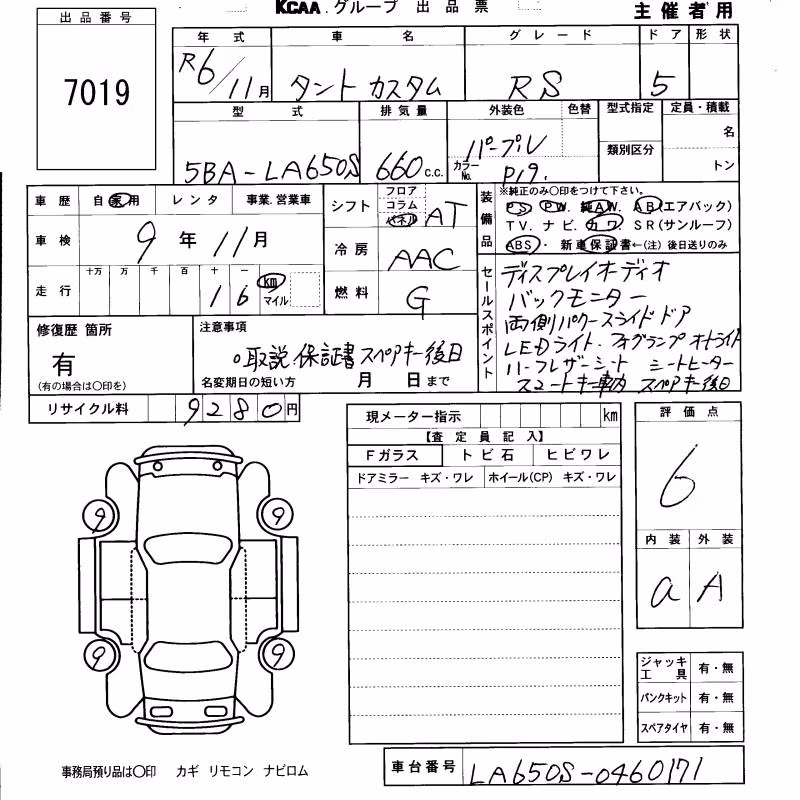 KCAA.グループ 出品票
主催者用
出品番号
7019
年式 車名 グレード ドア 形状
R6/11月 タントカスタム RS 5
型式 排気量 外装色 色替 型式指定 定員・積載
5BA-LA650S 660 c.c. パープル 名
カラーNo. P19. 類別区分 トン
車歴 自家用 レンタ 事業.営業車
車検 9年11月
走行 十万 万 千 百 十 一
16 km マイル
シフト フロア コラム パネル AT
冷房 AAC
燃料 G
装備品 ※純正のみ○印をつけて下さい。
PS. PW. 純AW. AB(エアバック)
TV. ナビ. カワ. SR(サンルーフ)
ABS・新車保証書←(注)後日送りのみ
セールスポイント
ディスプレイオーディオ
バックモニター
両側パワースライドドア
LEDライト.フォグランプ オートライト
ハーフレザーシート シートヒーター
スマートキー車内 スペアキー後日
修復歴 箇所
有
(有の場合は○印を)
注意事項
○取説.保証書 スペアキー後日
名変期日の短い方 月 日まで
リサイクル料 9280円
現メーター指示 km
【査定員記入】
Fガラス トビ石 ヒビワレ
ドアミラー キズ・ワレ ホイール(CP) キズ・ワレ
評価点
6
内装 外装
a A
9 9
9 9
ジャッキ工具 有・無
パンクキット 有・無
スペアタイヤ 有・無
事務局預り品は○印 カギ リモコン ナビロム
車台番号 LA650S-0460171